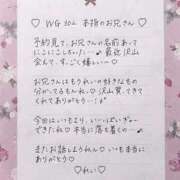 ♡ WG 302 本指のお兄さん ♡
予約見て、お兄さんの名前あって
にこにこしちゃった…♪ 最近沢山
会えて、すっごく嬉しい…
お兄さんはもうれいの好きなもの
分かってるもんね♡ 沢山買ってきて
くれてありがとう…!
れいも今日もいっぱいぎゅー
できたね♡ 本当に落ち着く…♪
またお話しようね♡ いつも本当に
ありがとう♡
♡れい♡